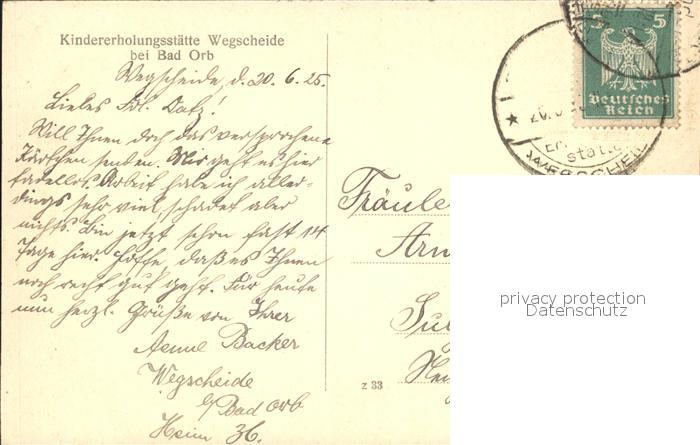 Kindererholungsstätte Wegscheide
bei Bad Orb
Wegscheide, d. 20.6.25.
Liebes Frl. Datz!
Will Ihnen doch das versprochene
Kärtchen senden. Mir geht es hier
tadellos. Arbeit habe ich aller-
dings sehr viel, schadet aber
nichts. Bin jetzt schon fast 14
Tage hier. Hoffe, daß es Ihnen
noch recht gut geht. Für heute
nun herzl. Grüße von Ihrer
Aenne Backer
Wegscheide
b/Bad Orb
Heim 36.
5 5
Deutsches
Reich
WEGSCHEI
Fräule
z 33
privacy protection
Datenschutz